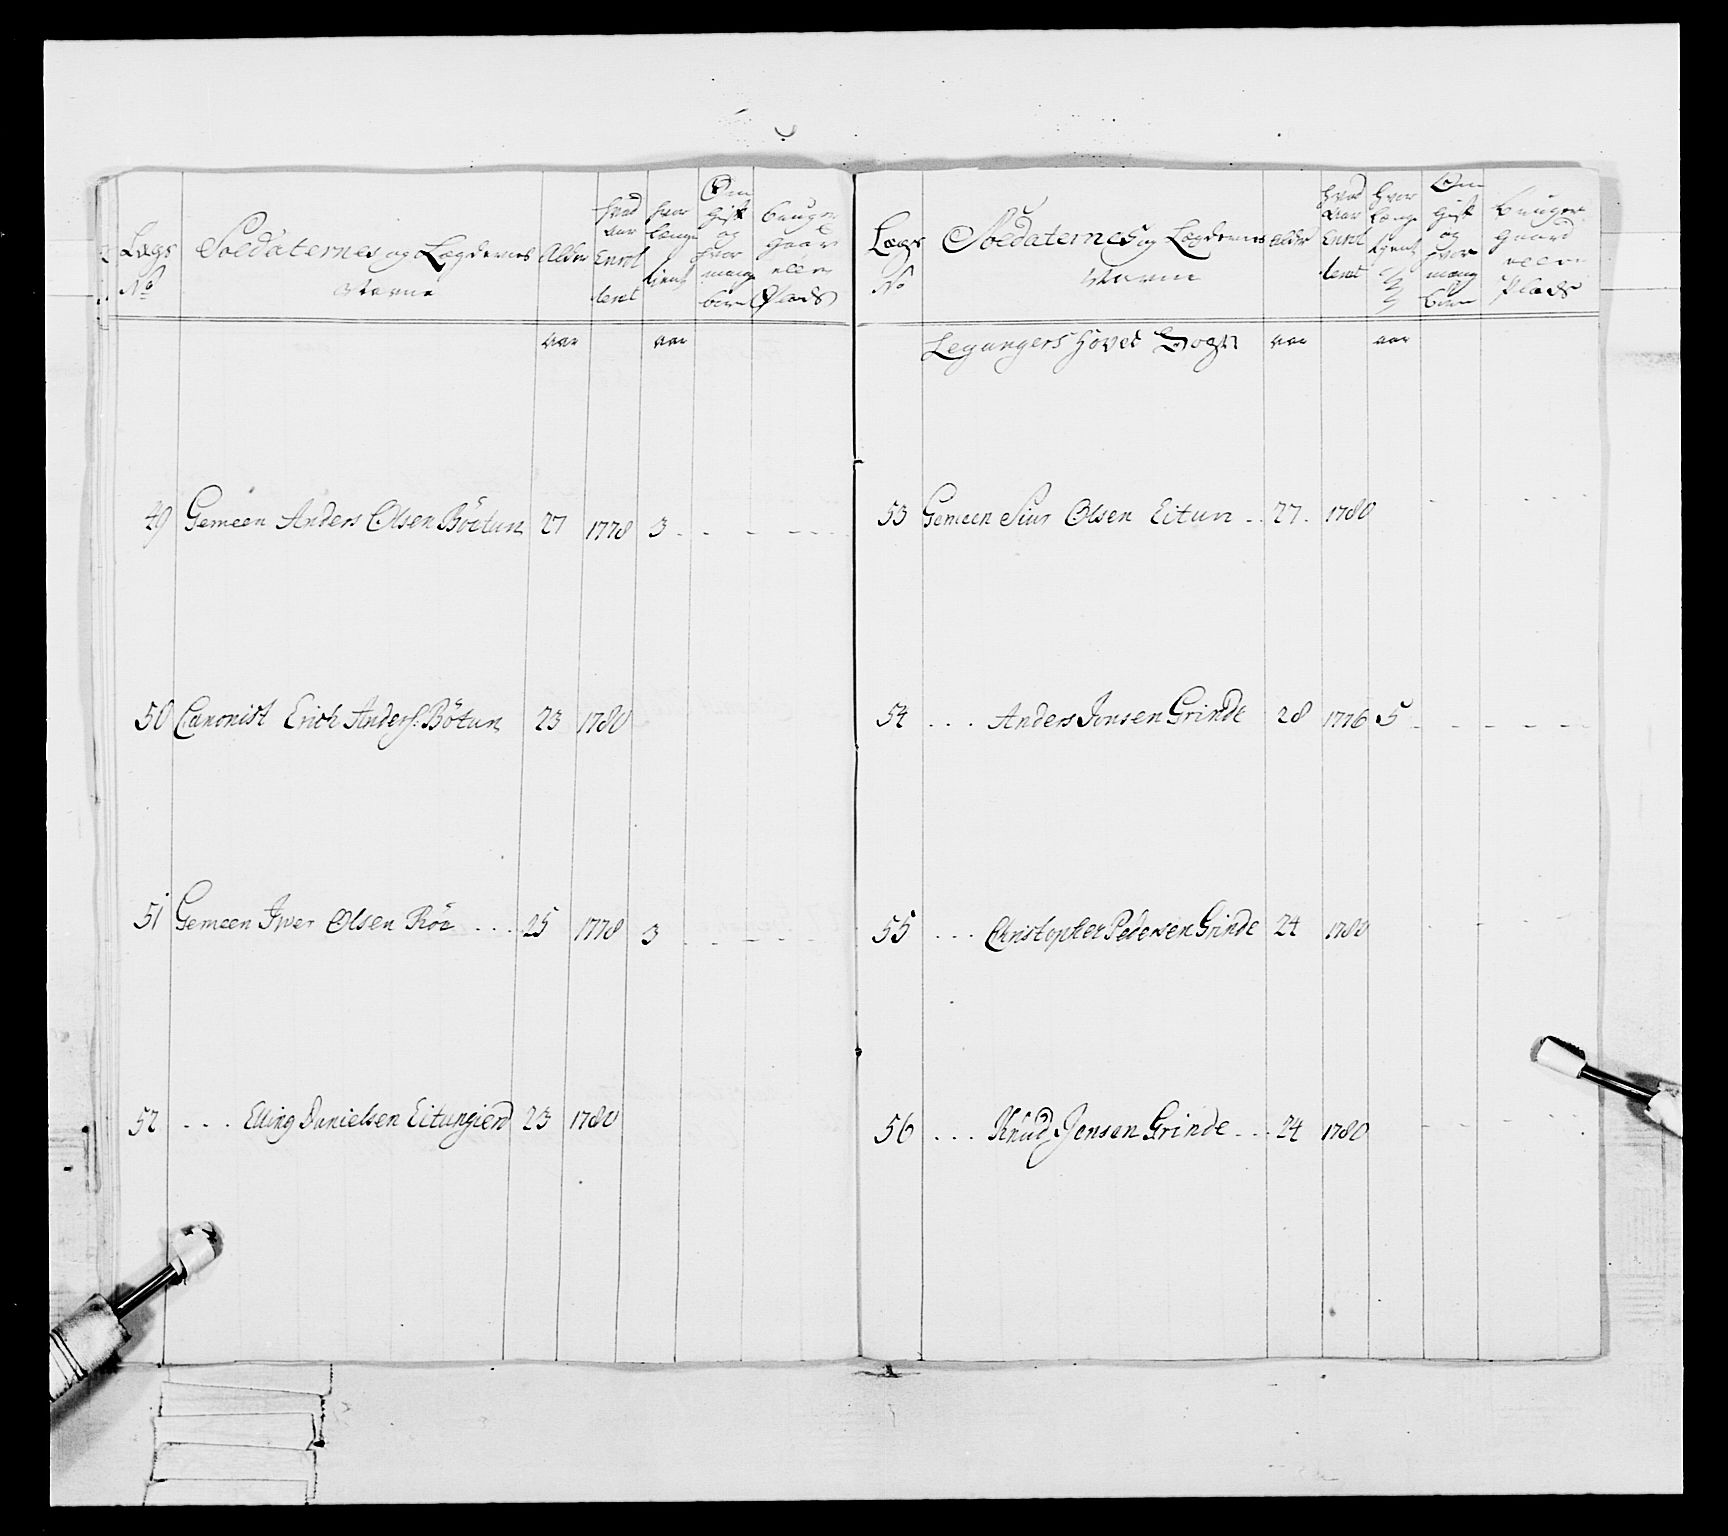 Lægs No
Soldaternes og Lægdernes Navne
Alder
hvad aar Enrolleret
hvor længe tient
Om gift og hvor mange børn
bruger gaard eller Plads
aar aar
49 Gemeen Anders Olsen Böetun 27 1778 3 . . - - - -
50 Canonist Erich Anders: Bötun 23 1780
51 Gemeen Iver Olsen Röe . . . 25 1778 3 . - - - -
52 . . . Elling Danielsen Eitungierd 23 1780
Lægs No
Soldaternes og Lægdernes Navne
Alder
hvad aar Enrolleret
hvor længe tient
Om gift og hvor mange børn
bruger gaard eller Plads
Legangers Hoved Sogn aar aar
53 Gemeen Siur Olsen Eitun . . 27. 1780
54 . . . Anders Jonsen Grinde 28 1776 5 . - - - - - -
55 . . . Christopher Pedersen Grinde 24 1780
56 . . . Knud Jensen Grinde . . . 24 1780